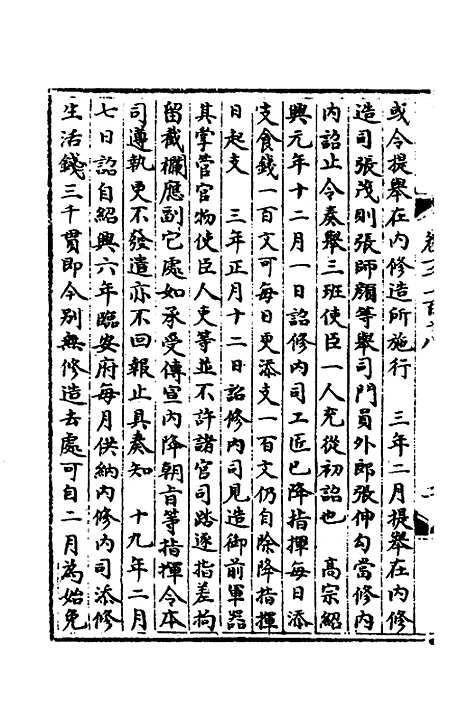 或令提舉在內修造所施行　三年二月提舉在內修
造司張茂則張師顏等舉司門員外郎張伸勾當修內
內詔止令奏舉三班使臣一人充從初詔也　高宗紹
興元年十二月一日詔修內司工匠已降指揮每日添
支食錢一百文可每日更添支一百文仍自除降指揮
日起支　三年正月十二日詔修內司見造御前軍器
其掌管官物使臣人吏等並不許諸官司踏逐指差拘
留截欄應副它處如承受傳宣內降朝旨等指揮令本
司遵執更不發遣亦不回報止具奏知　十九年二月
七日詔自紹興六年臨安府每月供納內修內司添修
生活錢三千貫即今別無修造去處可自二月為始免